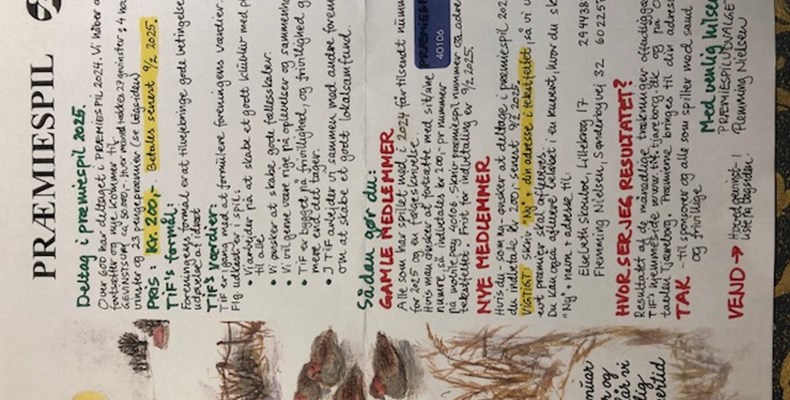 PRÆMIESPIL
Deltag i præmiespil 2025.
Over 600 har deltaget i PRÆMIESPIL 2024. Vi håber a
fortsætter og nye kommer til.
GEVINSTSUM ca 50.000,- hver måned trækkes 27 gevinster: 4 hov
vinster og 23 pengepræmier (se bagsiden)
PRIS: Kr. 200,- Betales senest 9/2 2025.
TIF's formål:
Foreningens formål er at tilvejebringe gode betingelse
udøvelse af idræt
TIF's værdier:
TIF er i gang med at formulere foreningens værdier.
Flg. udkast er i spil:
• Vi arbejder på at skabe et godt klubliv med p
til alle
• Vi ønsker at skabe gode fællesskaber.
• Vi vil gerne være rige på oplevelser og sammenhø
• TIF er bygget på frivillighed, og frivillighed g
mere end det tager.
• I TIF arbejder vi sammen med andre foren
om at skabe et godt lokalsamfund.
Sådan gør du:
GAMLE MEDLEMMER
Alle som har spillet med i 2024 får tilsendt numm
for 2025 og en følgeskrivelse.
Hvis man ønsker at fortsætte med sit/sine
numre, så indbetales kr 200,- pr nummer
på mobile pay 40106. Skriv præmiespil nummer og adre
tekstfeltet. Frist for indbetaling er 9/2 2025.
PRÆMIESP
40106
NYE MEDLEMMER
Hvis du - som ny - ønsker at deltage i præmiespil 202
du indbetale kr. 200,- senest 9/2 2025.
VIGTIGT: skriv "Ny" + din adresse i tekstfeltet, så vi v
evt præmier skal afleveres.
Du kan også aflevere beløbet i en kuvert, hvor du sk
"Ny" + navn + adresse til:
Elsebeth Skoubo, Lillekrog 17 294438
Flemming Nielsen, Sønderbyvej 32 602257
HVOR SER JEG RESULTATET?
Resultatet af de månedlige trækninger offentliggø
TIF's hjemmeside www.tif-tjæreborg.dk og på O
tavlen Tjæreborg. Præmierne bringes til din adres
TAK - til sponsorer og alle som spiller med samt
og frivillige
Med venlig hilsen
PRÆMIESPILUDVALGET
Flemming Nielsen
VEND → Hovedgevinst-!
liste på bagsiden.
nuar
r og
år vi
lig
ertid